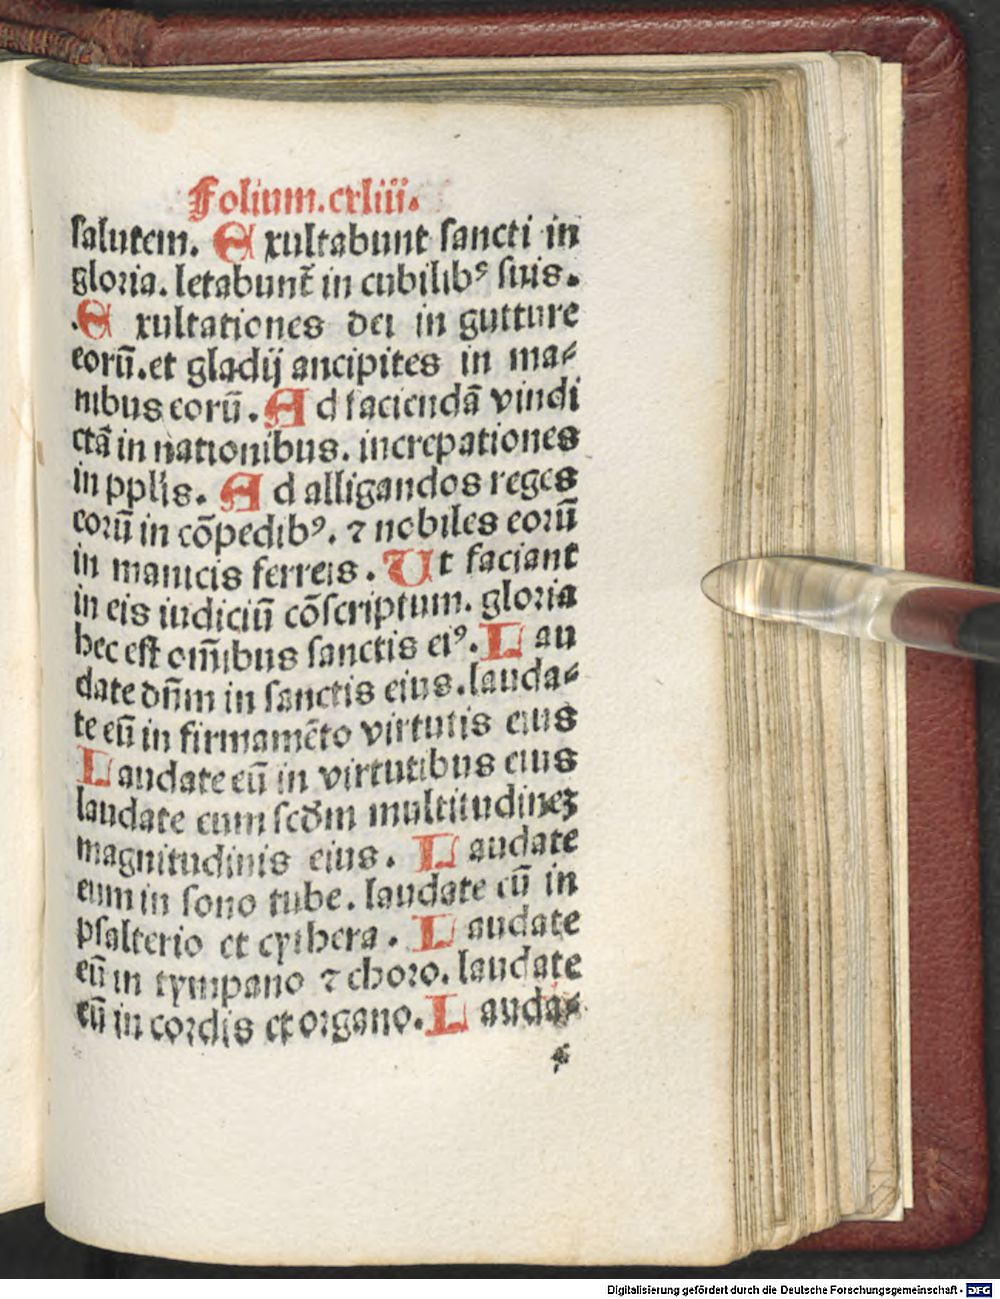 Folium.cxliii.
salutem. Exultabunt sancti in
gloria. letabunt̃ in cubilibꝰ suis.
Exultationes dei in gutture
eorū.et gladij ancipites in ma⸗
nibus eorū. Ad faciendā vindi
ctā in nationibus. increpationes
in pplis. Ad alligandos reges
eorū in cōpedibꝰ. ⁊ nobiles eorū
in manicis ferreis. Ut faciant
in eis iudiciū cōscriptum. gloria
hec est om̄ibus sanctis eiꝰ. Lau
date dn̄m in sanctis eius. lauda⸗
te eū in firmamēto virtutis eius
Laudate eū in virtutibus eius
laudate eum scd̄m multitudineꝫ
magnitudinis eius. Laudate
eum in sono tube. laudate eū in
psalterio et cythera. Laudate
eū in tympano ⁊ choro. laudate
eū in cordis et organo. Lauda⸗
Digitalisierung gefördert durch die Deutsche Forschungsgemeinschaft - DFG